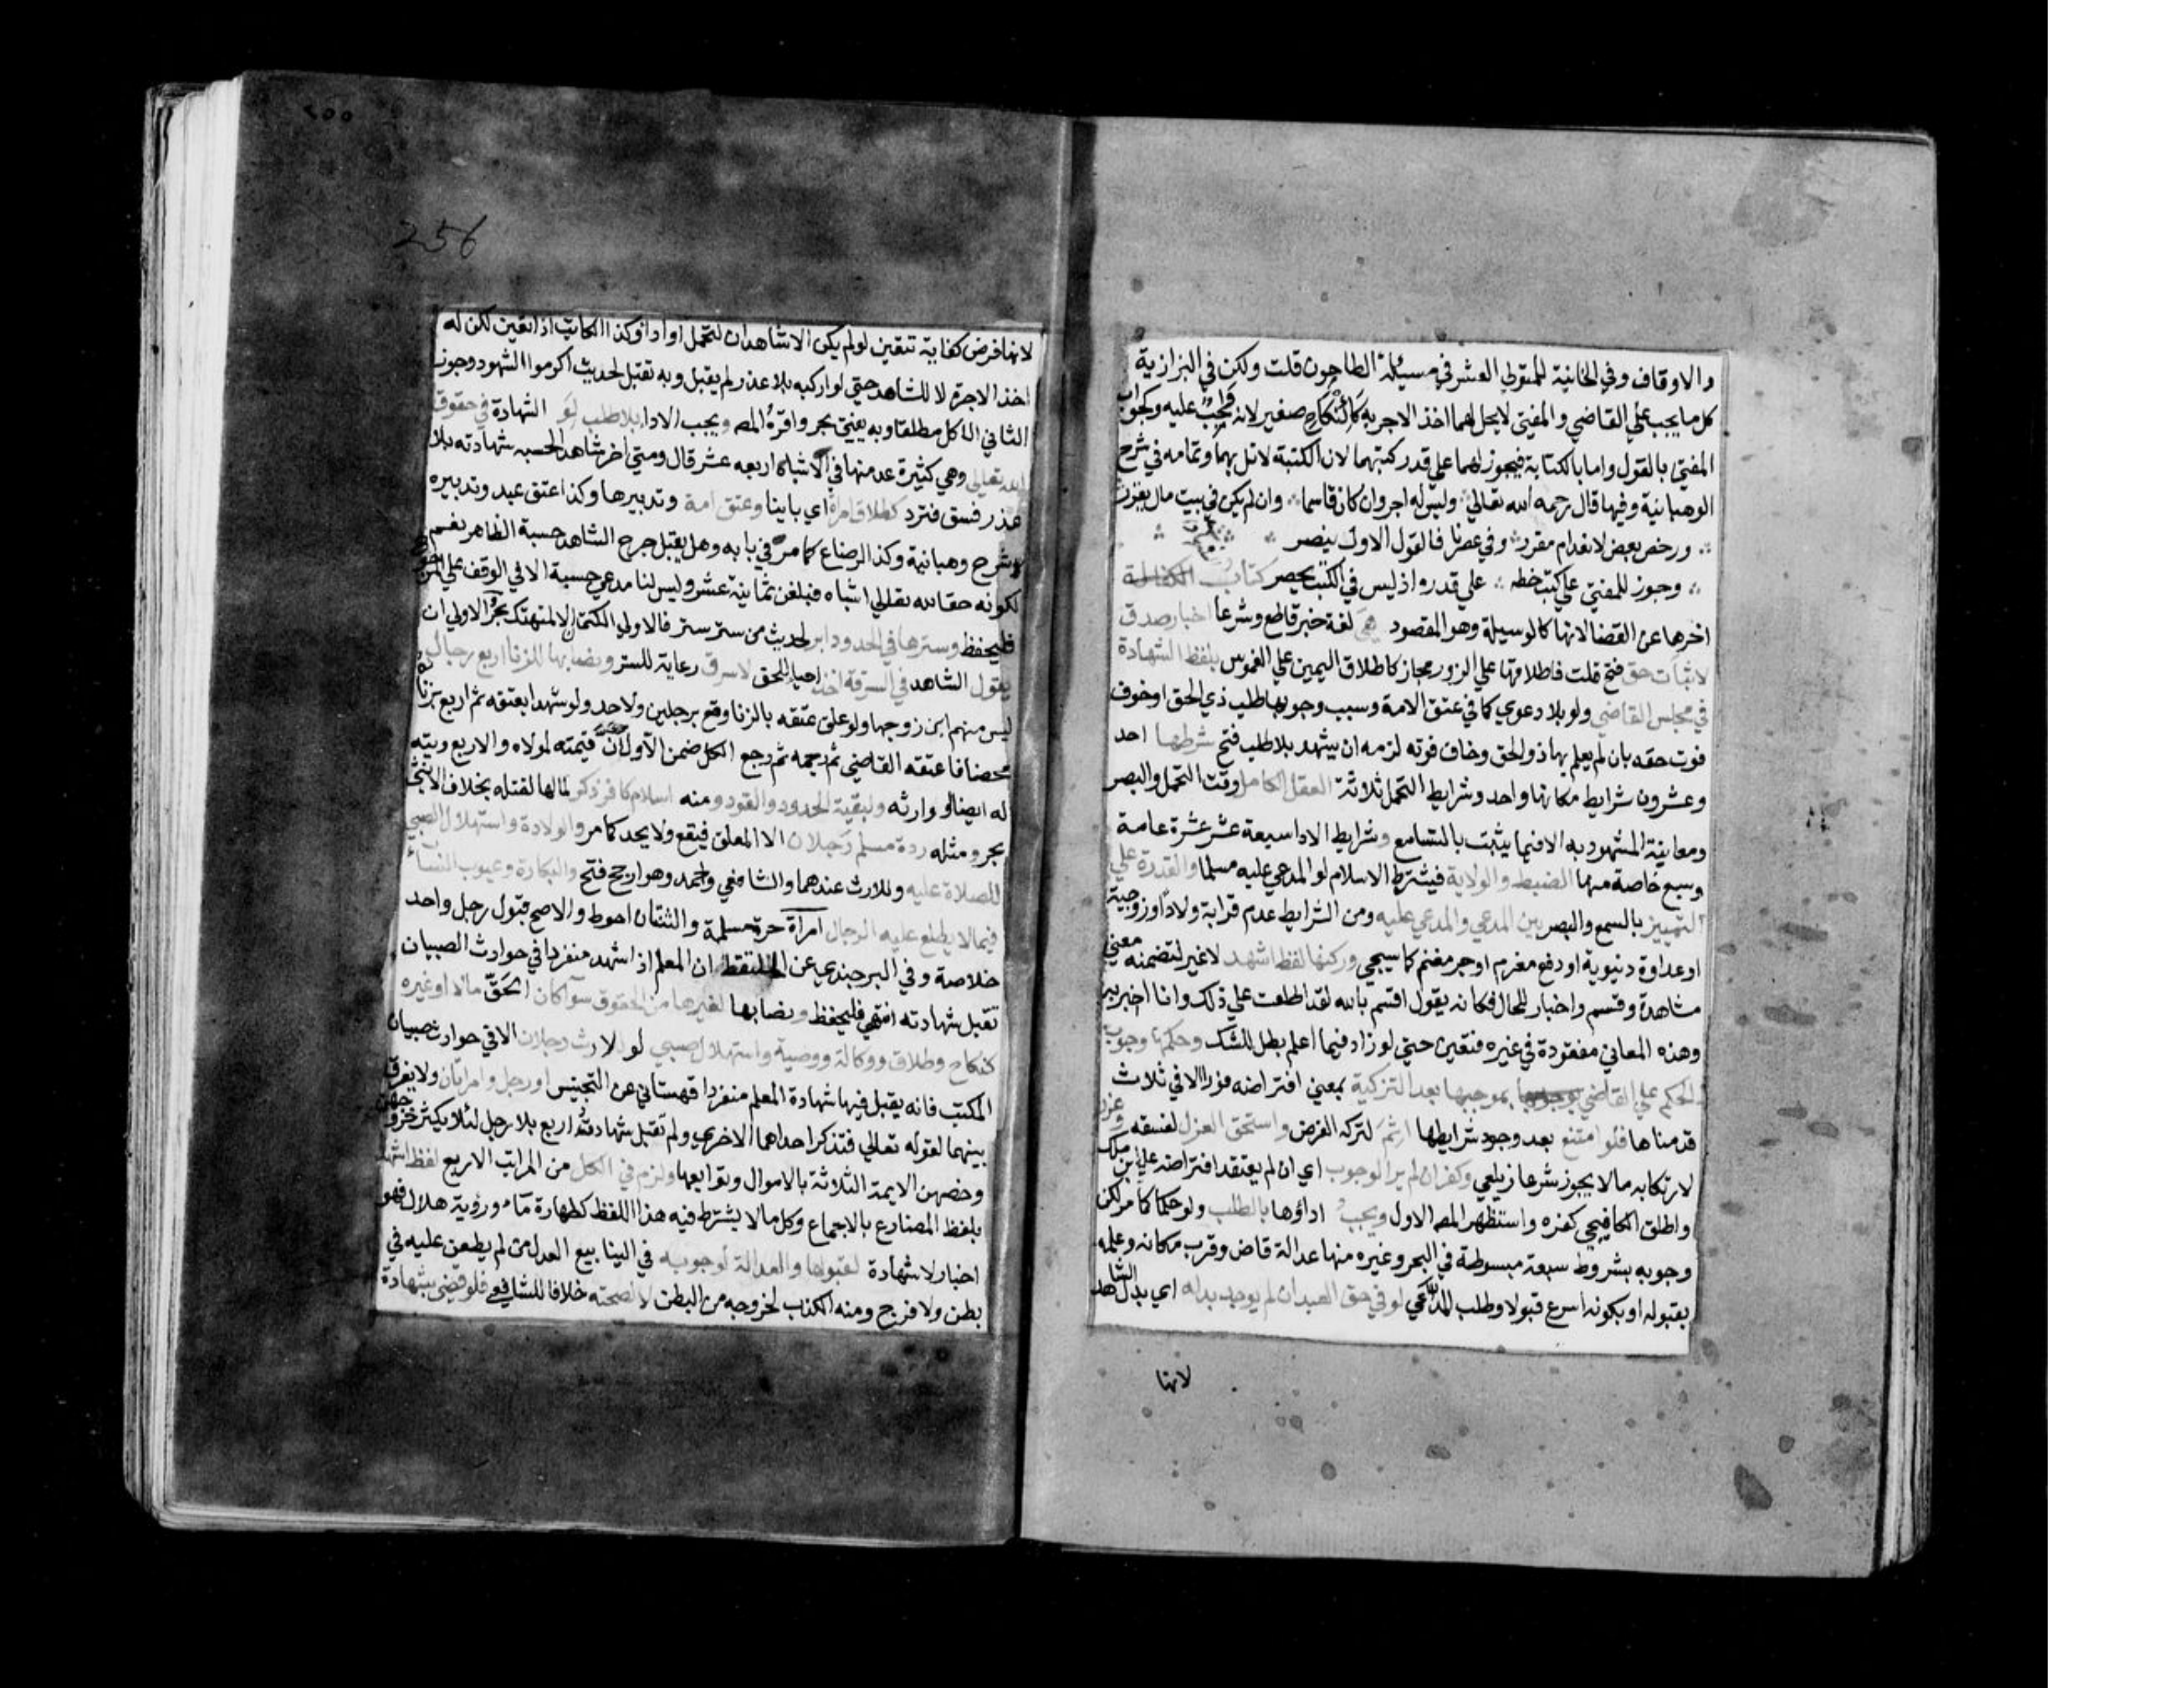 والاوقاف وفي الخانية للمتولي العشر في مسئلة الطاحون قلت ولكن في البزازية
كل ما يجب علي القاضي والمفتي لايحل لهما اخذ الاجر به كانكاح صغير لانه واجب عليه وكجواب
المفتي بالقول واما بالكتابة فيجوز لهما علي قدر كتبهما لان الكتبة لا تلزمهما وتمامه في شرح
الوهبانية وفيها قال رحمه الله تعالي وليس له اجر وان كان قاسما وان لم يكن في بيت مال يقرر
ورخص بعض لانعدام مقرر وفي عصرنا فالقول الاول ينصر
وجوز للمفتي علي كتب خطه علي قدره اذ ليس في الكتب يحصر كتاب
اخرها عن القضا لانها كالوسيلة وهو المقصود هي لغة خبر قاطع وشرعا اخبار صدق
لاثبات حق فتح قلت فاطلاقها علي الزور مجاز كاطلاق اليمين علي الغموس بلفظ الشهادة
في مجلس القاضي ولو بلا دعوي كما في عتق الامة وسبب وجوبها طلب ذي الحق اوخوف
فوت حقه بان لم يعلم بها ذو الحق وخاف فوته لزمه ان يشهد بلا طلب فتح شرطها احد
وعشرون شرايط مكانها واحد وشرايط التحمل ثلاثة العقل الكامل وقت التحمل والبصر
ومعاينة المشهود به الا فيما يثبت بالتسامع وشرايط الادا سبعة عشر عشرة عامة
وسبع خاصة منها الضبط والولاية فيشترط الاسلام لو المدعي عليه مسلما والقدرة علي
التمييز بالسمع والبصر بين المدعي والمدعي عليه ومن الشرايط عدم قرابة ولاد اوزوجية
اوعداوة دنيوية او دفع مغرم اوجر مغنم كما سيجي وركنها لفظ اشهد لا غير لتضمنه معني
مشاهدة وقسم واخبار للحال فكانه يقول اقسم بالله لقد اطلعت علي ذلك وانا اخبر به
وهذه المعاني مفقودة في غيره فتعين حتي لو زاد فيما اعلم بطل للشك وحكمها وجوب
الحكم علي القاضي بموجبها بعد التزكية بمعني افتراضه فورا الا في ثلاث
قدمناها فلو امتنع بعد وجود شرايطها اثم لتركه الفرض واستحق العزل لفسقه وعزر
لارتكابه ما لا يجوز شرعا زيلعي وكفر ان لم ير الوجوب اي ان لم يعتقد افتراضه عليه ابن ملك
واطلق الكافيجي كفره واستظهر المص الاول ويجب اداؤها بالطلب ولو حكما كما مر لكن
وجوبه بشروط سبعة مبسوطة في البحر وغيره منها عدالة قاض وقرب مكانه وعلمه
بقبوله او بكونه اسرع قبولا وطلب المدعي لو في حق العبد ان لم يوجد بدله اي بدل الشاهد
لانها
٢٥٥
256
لانها فرض كفاية تتعين لو لم يكن الا شاهدان لتحمل او ادا وكذا الكاتب اذا تعين لكن له
اخذ الاجرة لا للشاهد حتي لو اركبه بلا عذر لم يقبل وبه تقبل لحديث اكرموا الشهود وجوز
الثاني الاكل مطلقا وبه يفتي بحر واقره المص ويجب الادا بلا طلب لو الشهادة في حقوق
الله تعالي وهي كثيرة عد منها في الاشباه اربعه عشر قال ومتي اخر شاهد الحسبه شهادته بلا
عذر فسق فترد كطلاق امراة اي باينا وعتق امة وتدبيرها وكذا عتق عبد وتدبيره
شرح وهبانية وكذا الرضاع كما مر في بابه وهل يقبل جرح الشاهد حسبة الظاهر نعم
لكونه حقا لله تعالي اشباه فبلغن ثمانية عشر وليس لنا مدعي حسبة الا في الوقف علي
فليحفظ وسترها في الحدود ابر لحديث من ستر ستر فالاولي الكتمان الا لمتهتك بحر والاولي ان
يقول الشاهد في السرقة اخذ احياء للحق لا سرق رعاية للستر ونصابها للزنا اربع رجال
ليس منهم ابن زوجها ولو علق عتقه بالزنا وقع برجلين ولا حد ولو شهدا بعتقه ثم اربع بزناه
محصنا فاعتقه القاضي ثم رجمه ثم رجع الكل ضمن الاولان قيمته لمولاه والاربع ديته
له ايضا لو وارثه ولبقية الحدود والقود ومنه اسلام كافر ذكر لمالها لقتله بخلاف الانثي
بحر ومثله ردة مسلم رجلان الا المعلق فيقع ولا يحد كما مر والولادة واستهلال الصبي
للصلاة عليه وللارث عندهما والشافعي واحمد وهو ارجح فتح والبكارة وعيوب النساء
فيما لا يطلع عليه الرجال امراة حرة مسلمة والثنتان احوط والاصح قبول رجل واحد
خلاصة وفي البرجندي عن الملتقط ان المعلم اذا شهد منفردا في حوادث الصبيان
تقبل شهادته انتهي فليحفظ ونصابها لغيرها من الحقوق سوآ كان الحق مالا اوغيره
كنكاح وطلاق ووكالة ووصية واستهلال صبي لو للارث رجلان الا في حوادث صبيان
المكتب فانه يقبل فيها شهادة المعلم منفردا قهستاني عن التجنيس او رجل وامراتان ولا يفرق
بينهما لقوله تعالي فتذكر احداهما الاخري ولم تقبل شهادة اربع بلا رجل لئلا يكثر خروجهن
وخصهن الايمة الثلاثة بالاموال وتوابعها ولزم في الكل من المراتب الاربع لفظ اشهد
بلفظ المضارع بالاجماع وكل ما لا يشترط فيه هذا اللفظ كطهارة ماء ورؤية هلال فهو
اخبار لا شهادة لقبولها والعدالة لوجوبه في الينابيع العدل من لم يطعن عليه في
بطن ولا فرج ومنه الكذب لخروجه من البطن لا لصحته خلافا للشافعي فلو قضي بشهادة